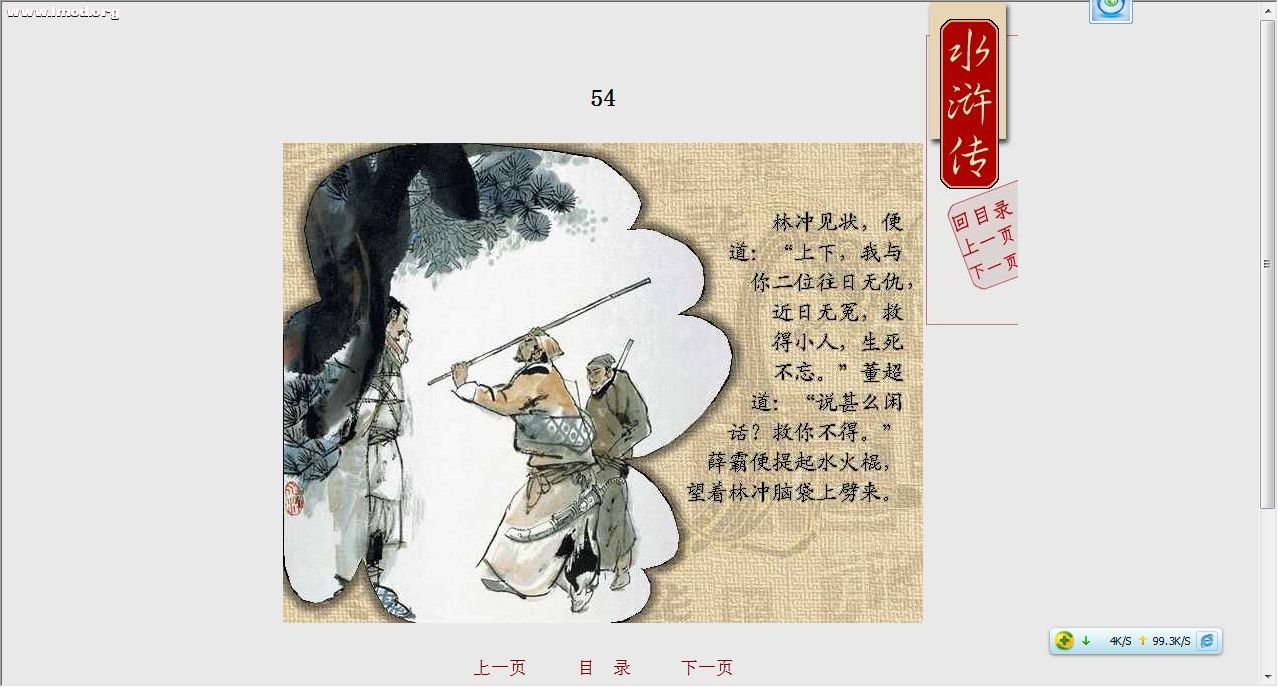 www.lmod.org
水浒传
54
林冲见状，便
道：“上下，我与
你二位往日无仇，
近日无冤，救
得小人，生死
不忘。”董超
道：“说甚么闲
话？救你不得。”
薛霸便提起水火棍，
望着林冲脑袋上劈来。
回目录
上一页
下一页
4K/S 99.3K/S
上一页 目 录 下一页